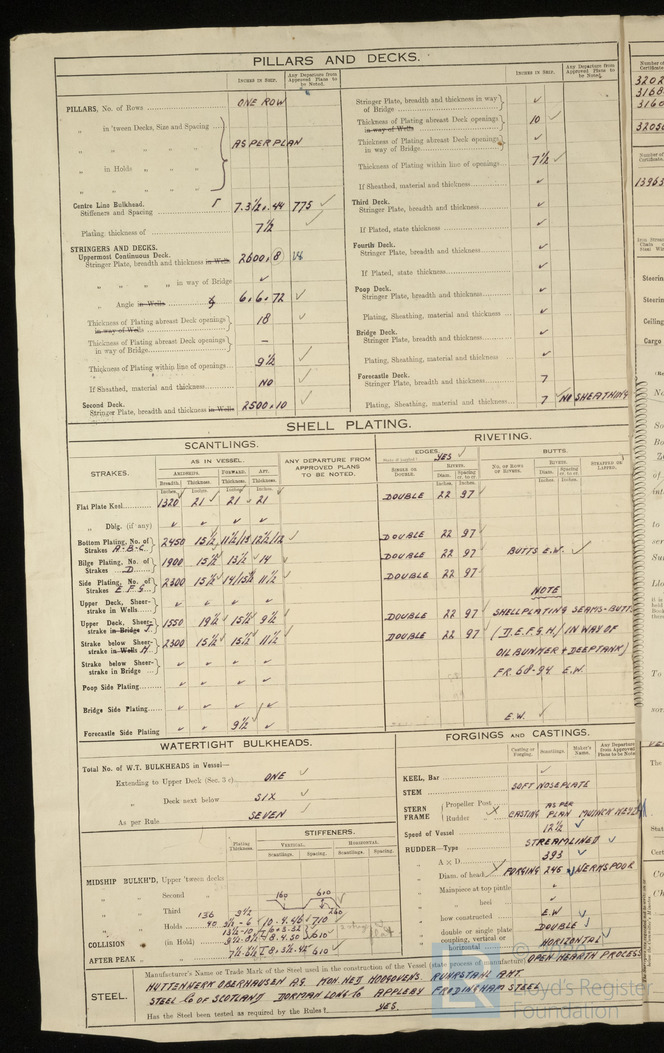 PILLARS AND DECKS.
INCHES IN SHIP.
Any Departure from Approved Plans to be Noted.
PILLARS, No. of Rows ONE ROW
" in 'tween Decks, Size and Spacing
" " " "
AS PER PLAN
" in Holds " "
" " " "
Centre Line Bulkhead.
Stiffeners and Spacing 7.3½.44 775 ✓
Plating, thickness of 7½
STRINGERS AND DECKS.
Uppermost Continuous Deck.
Stringer Plate, breadth and thickness in Wells 2600.8
" " " " in way of Bridge ✓
" Angle in Wells 6.6.72 ✓
Thickness of Plating abreast Deck openings in way of Wells 18 ✓
Thickness of Plating abreast Deck openings in way of Bridge –
Thickness of Plating within line of openings 9½ ✓
If Sheathed, material and thickness NO ✓
Second Deck.
Stringer Plate, breadth and thickness in Wells 2500.10 ✓
INCHES IN SHIP.
Any Departure from Approved Plans to be Noted.
Stringer Plate, breadth and thickness in way of Bridge ✓
Thickness of Plating abreast Deck openings in way of Wells 10 ✓
Thickness of Plating abreast Deck openings in way of Bridge ✓
Thickness of Plating within line of openings 7½ ✓
If Sheathed, material and thickness ✓
Third Deck.
Stringer Plate, breadth and thickness ✓
If Plated, state thickness ✓
Fourth Deck.
Stringer Plate, breadth and thickness ✓
If Plated, state thickness ✓
Poop Deck.
Stringer Plate, breadth and thickness ✓
Plating, Sheathing, material and thickness ✓
Bridge Deck.
Stringer Plate, breadth and thickness ✓
Plating, Sheathing, material and thickness ✓
Forecastle Deck.
Stringer Plate, breadth and thickness 7
Plating, Sheathing, material and thickness 7 ✓ NO SHEATHING
SHELL PLATING.
SCANTLINGS.
RIVETING.
STRAKES.
AS IN VESSEL.
AMIDSHIPS. FORWARD. AFT.
Breadth. Thickness. Thickness. Thickness.
ANY DEPARTURE FROM APPROVED PLANS TO BE NOTED.
EDGES. YES ✓
SINGLE OR DOUBLE.
RIVETS.
Diam. Spacing cr. to cr.
BUTTS.
No. OF ROWS OF RIVETS.
RIVETS.
Diam. Spacing cr. to cr.
STRAPPED OR LAPPED.
Inches. Inches. Inches. Inches.
Flat Plate Keel 1320 21 ✓ 21 ✓ 21 DOUBLE 22 97 ✓
" Dblg. (if any) ✓ ✓ ✓ ✓
Bottom Plating, No. of Strakes A-B-C 2450 15½ DOUBLE 22 97 ✓
Bilge Plating, No. of Strakes D 1900 15½ 13½ 14 ✓ DOUBLE 22 97 BUTTS E.W. ✓
Side Plating, No. of Strakes E.F.G. 2300 15½ 11½ ✓ DOUBLE 22 97
Upper Deck, Sheerstrake in Wells ✓ ✓ ✓ ✓
NOTE
Upper Deck, Sheerstrake in Bridge J. 1550 19½ 15½ 9½ DOUBLE 22 97 SHELLPLATING SEAMS-BUTTS
Strake below Sheerstrake in Wells H 2300 15½ 15½ 11½ DOUBLE 22 97 (D.E.F.G.H.) IN WAY OF
OIL BUNKER + DEEPTANK
Strake below Sheerstrake in Bridge ✓ ✓ ✓ ✓ FR 68-94 E.W.
Poop Side Plating ✓ ✓ ✓ ✓
Bridge Side Plating ✓ ✓ ✓ ✓
Forecastle Side Plating ✓ ✓ 9½ ✓ E.W. ✓
WATERTIGHT BULKHEADS.
Total No. of W.T. BULKHEADS in Vessel—
Extending to Upper Deck (Sec. 3 c) ONE ✓
" Deck next below SIX ✓
As per Rule SEVEN ✓
Plating Thickness
STIFFENERS.
VERTICAL. HORIZONTAL.
Scantlings. Spacing. Scantlings. Spacing.
MIDSHIP BULKH'D, Upper 'tween decks
" " Second " 160 610
" " Third " 260
" " Holds 710
COLLISION " (in Hold) 8.4.50 610
AFTER PEAK " " 610
FORGINGS AND CASTINGS.
Casting or Forging. Scantlings. Maker's Name. Any Departure from Approved Plans to be Noted
KEEL, Bar ✓
STEM SOFT NOSEPLATE
STERN FRAME
Propeller Post
Rudder "
CASTING AS PER PLAN
Speed of Vessel 12½ ✓
RUDDER—Type STREAMLINED ✓
" A × D 393 ✓
" Diam. of head FORGING 246 WERKSPOOR
" Mainpiece at top pintle ✓
" " heel ✓
" how constructed E.W ✓
" double or single plate DOUBLE ✓
" coupling, vertical or horizontal HORIZONTAL ✓
STEEL.
Manufacturer's Name or Trade Mark of the Steel used in the construction of the Vessel (state process of manufacture) OPEN HEARTH PROCESS
HUTTENWERK OBERHAUSEN A.G. KON. NED. HOOGOVENS RUHRSTAHL ANT.
STEEL Co OF SCOTLAND DORMAN LONG Co APPLEBY FRODINGHAM STEEL
Has the Steel been tested as required by the Rules? YES.
Lloyd's Register
Foundation